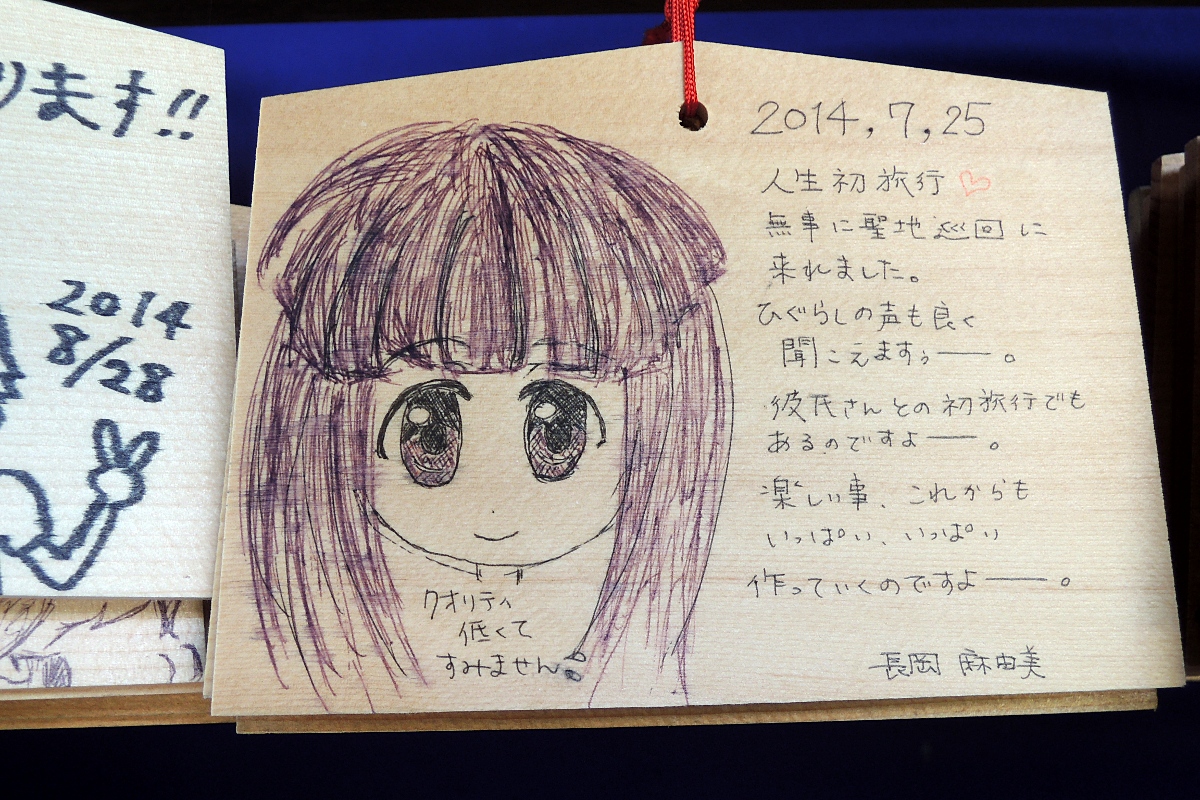 ります!!
2014
8/28
2014,7,25
人生初旅行♡
無事に聖地巡回に
来れました。
ひぐらしの声も良く
聞こえますぅ――。
彼氏さんとの初旅行でも
あるのですよ――。
楽しい事、これからも
いっぱい、いっぱい
作っていくのですよ――。
長岡 麻由美
クオリティ
低くて
すみません